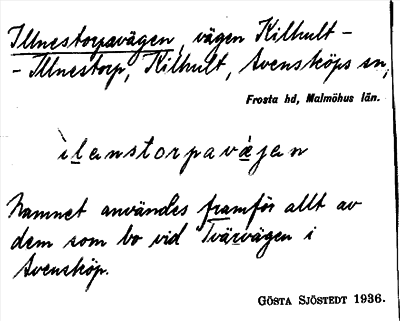 Illnestorpavägen, vägen Kilhult -
- Illnestorp, Kilhult, Svensköps sn,
Frosta hd, Malmöhus län.
ìlenstorpavæ̀jen
Namnet användes framför allt av
dem som bo vid Tvärvägen i
Svensköp.
GÖSTA SJÖSTEDT 1936.